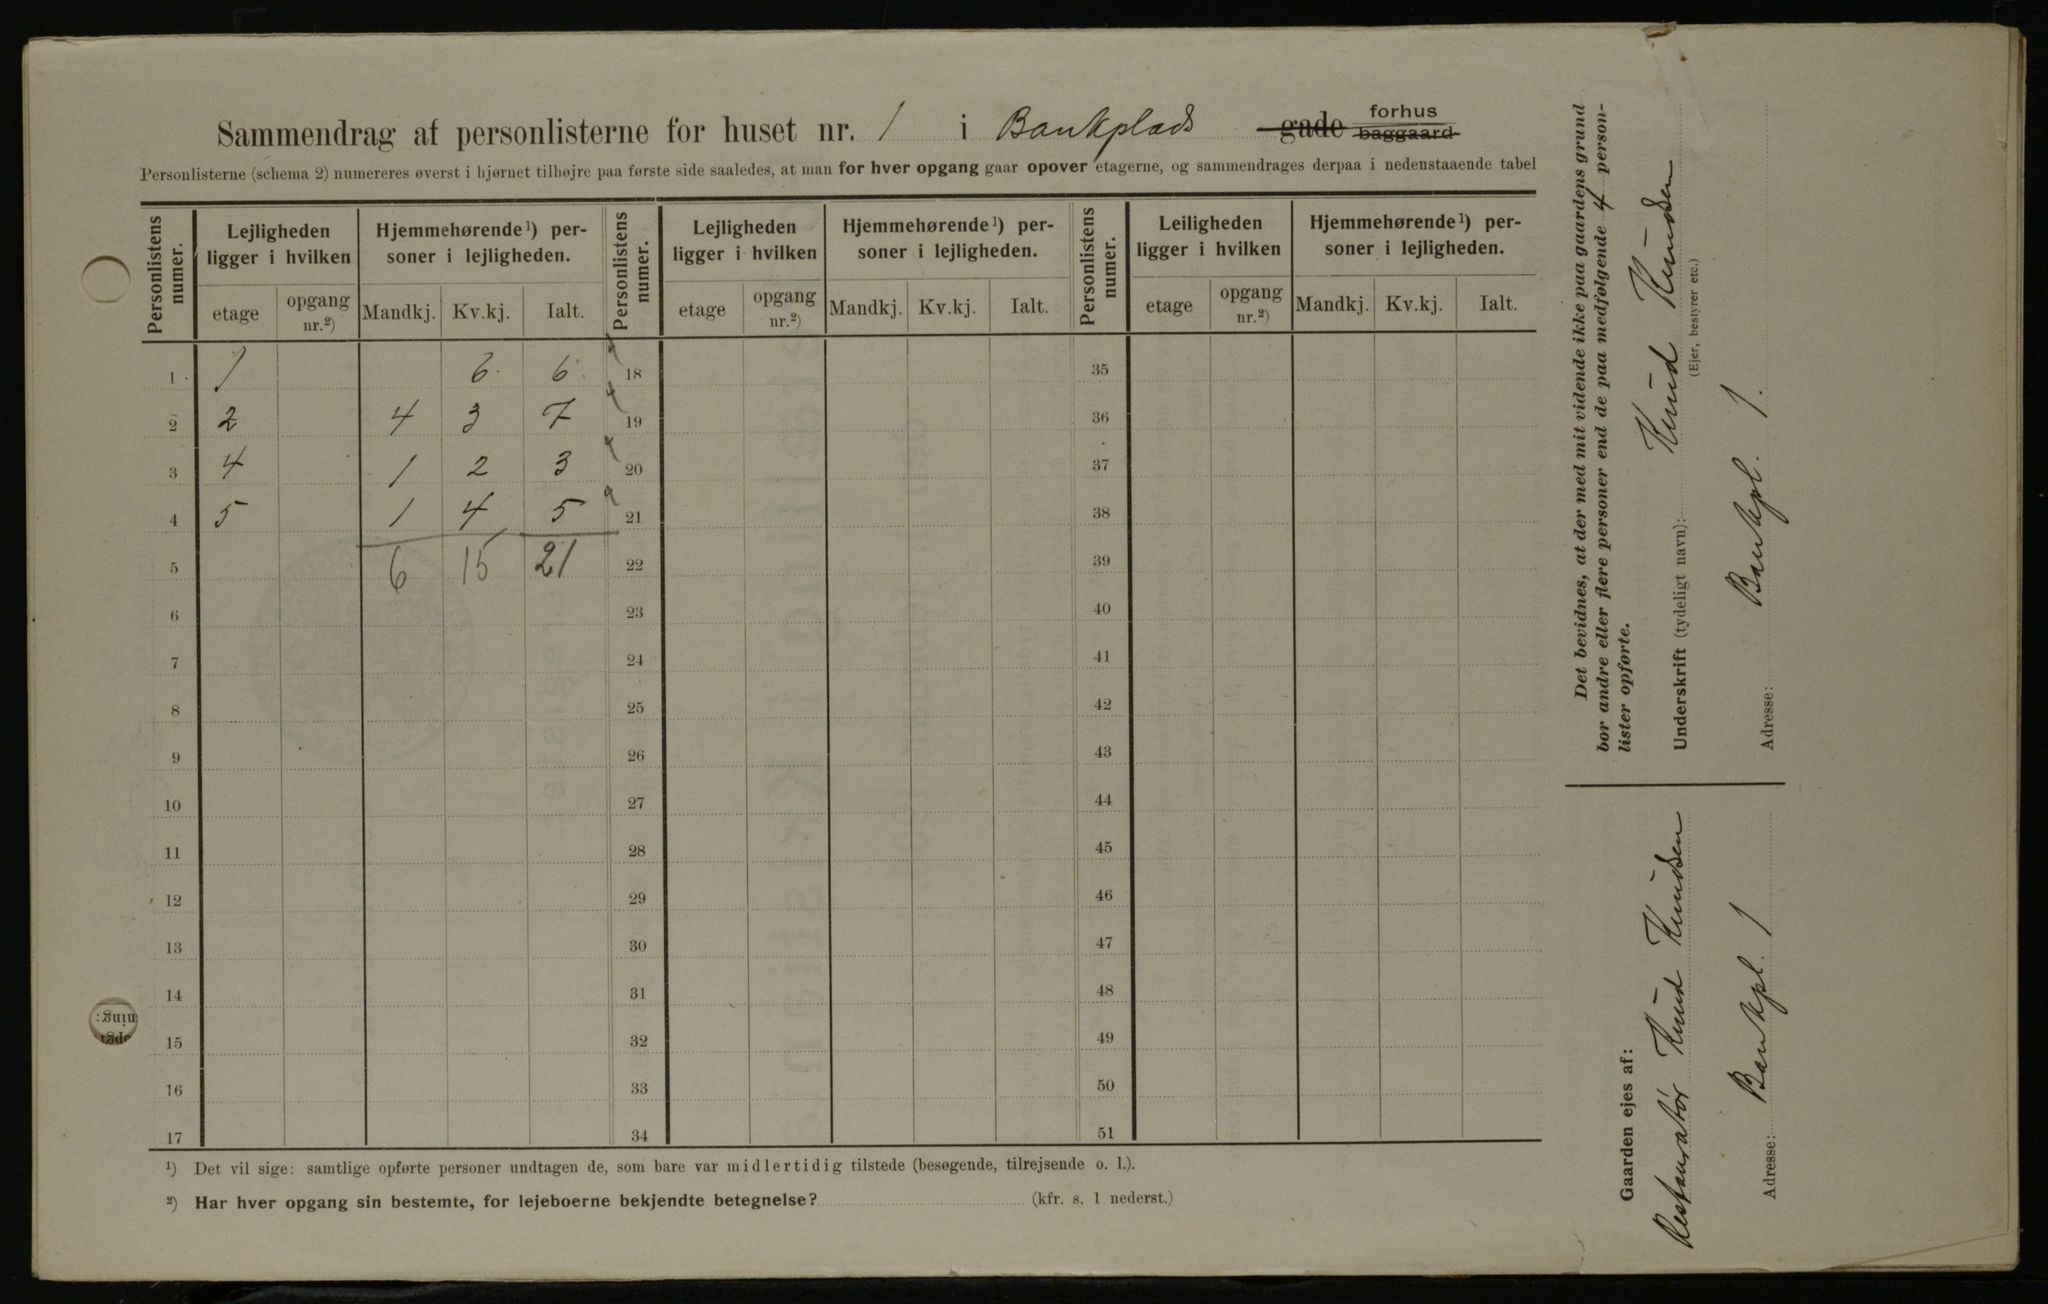 Sammendrag af personlisterne for huset nr. 1 i Bankplads gade forhus baggaard
Personlisterne (schema 2) numereres øverst i hjørnet tilhøjre paa første side saaledes, at man for hver opgang gaar opover etagerne, og sammendrages derpaa i nedenstaaende tabel
Personlistens numer. | Lejligheden ligger i hvilken | Hjemmehørende¹) personer i lejligheden. | Personlistens numer. | Lejligheden ligger i hvilken | Hjemmehørende¹) personer i lejligheden. | Personlistens numer. | Leiligheden ligger i hvilken | Hjemmehørende¹) personer i lejligheden.
etage | opgang nr.²) | Mandkj. | Kv.kj. | Ialt. | etage | opgang nr.²) | Mandkj. | Kv.kj. | Ialt. | etage | opgang nr.²) | Mandkj. | Kv.kj. | Ialt.
1 | 1 | | | 6 | 6 | 18 | 35
2 | 2 | | 4 | 3 | 7 | 19 | 36
3 | 4 | | 1 | 2 | 3 | 20 | 37
4 | 5 | | 1 | 4 | 5 | 21 | 38
5 | | | 6 | 15 | 21 | 22 | 39
6 | 23 | 40
7 | 24 | 41
8 | 25 | 42
9 | 26 | 43
10 | 27 | 44
11 | 28 | 45
12 | 29 | 46
13 | 30 | 47
14 | 31 | 48
15 | 32 | 49
16 | 33 | 50
17 | 34 | 51
¹) Det vil sige: samtlige opførte personer undtagen de, som bare var midlertidig tilstede (besøgende, tilrejsende o. l.).
²) Har hver opgang sin bestemte, for lejeboerne bekjendte betegnelse? (kfr. s. 1 nederst.)
Det bevidnes, at der med mit vidende ikke paa gaardens grund
bor andre eller flere personer end de paa medfølgende 4 person-
lister opførte.
Underskrift (tydeligt navn): Knud Knudsen
(Ejer, bestyrer etc.)
Adresse: Bankpl. 1.
Gaarden ejes af:
Restauratør Knud Knudsen
Adresse: Bankpl. 1